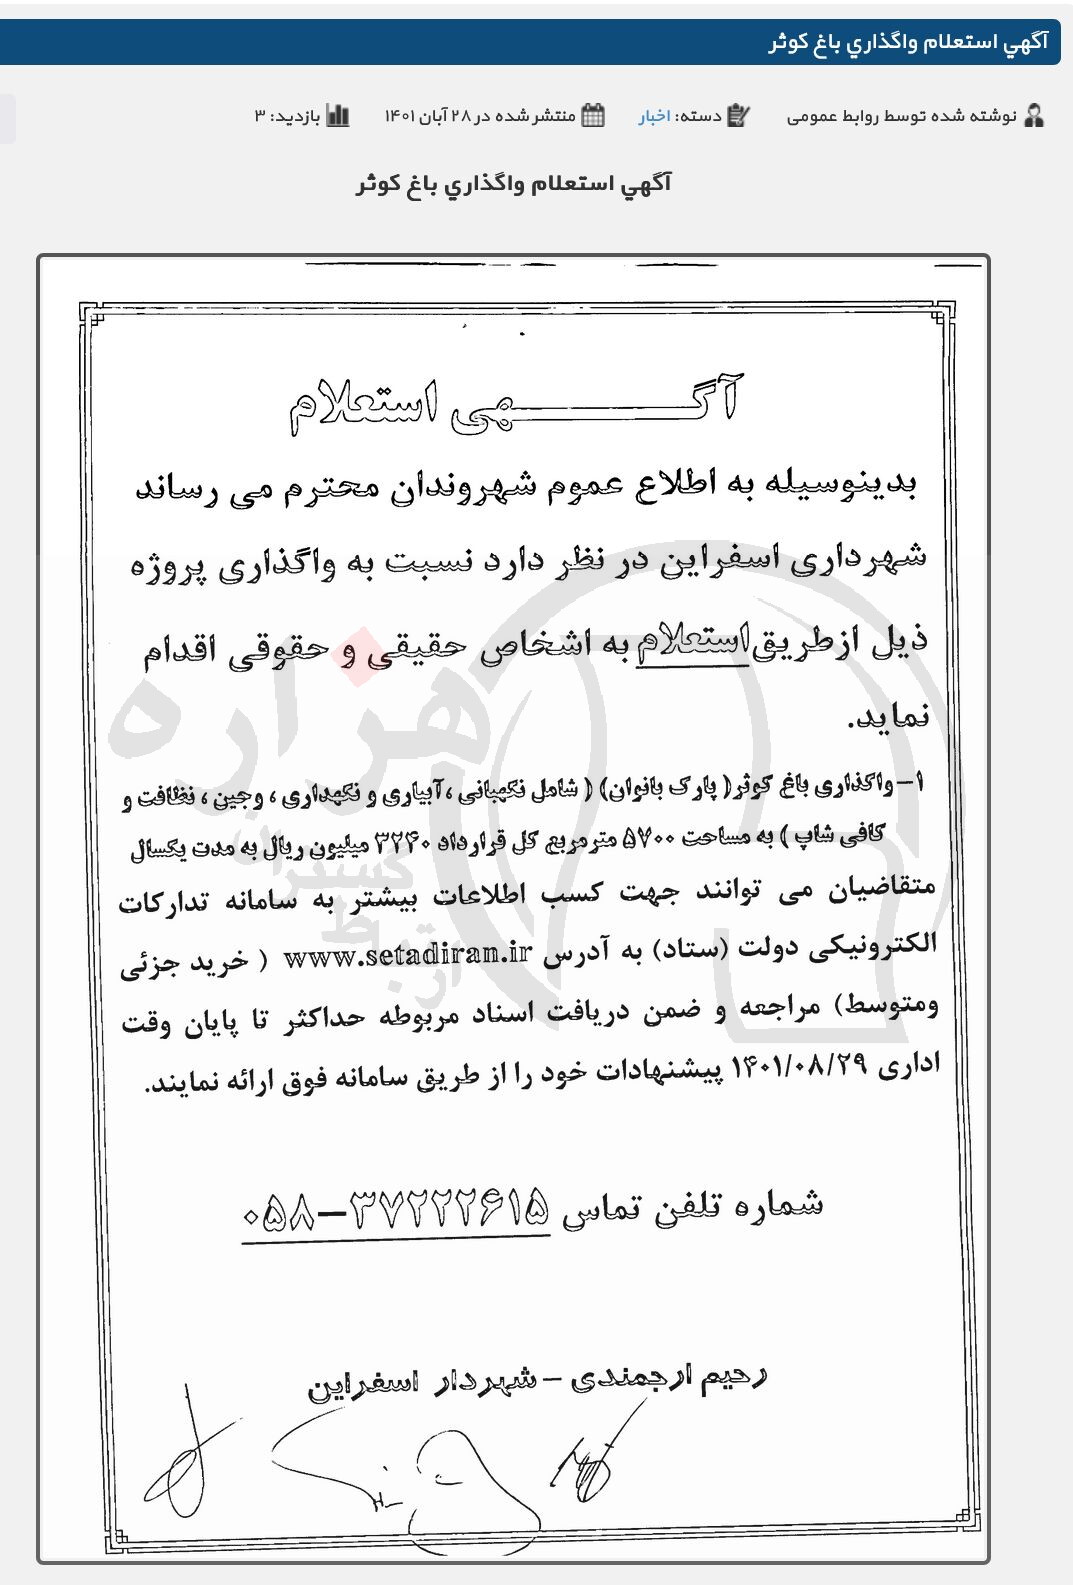 آگهي استعلام واگذاري باغ کوثر
نوشته شده توسط روابط عمومی دسته: اخبار منتشر شده در ۲۸ آبان ۱۴۰۱ بازدید: ۳
آگهي استعلام واگذاري باغ کوثر
آگهی استعلام
بدینوسیله به اطلاع عموم شهروندان محترم می رساند
شهرداری اسفراین در نظر دارد نسبت به واگذاری پروژه
ذیل ازطریق استعلام به اشخاص حقیقی و حقوقی اقدام
نماید.
۱- واگذاری باغ کوثر( پارک بانوان) ( شامل نگهبانی ،آبیاری و نگهداری ، وجین ، نظافت و
کافی شاپ ) به مساحت ۵۷۰۰ مترمربع کل قرارداد ۳۲۴۰ میلیون ریال به مدت یکسال
متقاضیان می توانند جهت کسب اطلاعات بیشتر به سامانه تدارکات
الکترونیکی دولت (ستاد) به آدرس www.setadiran.ir ( خرید جزئی
ومتوسط) مراجعه و ضمن دریافت اسناد مربوطه حداکثر تا پایان وقت
اداری ۱۴۰۱/۰۸/۲۹ پیشنهادات خود را از طریق سامانه فوق ارائه نمایند.
شماره تلفن تماس ۳۷۲۲۲۶۱۵-۰۵۸
رحیم ارجمندی - شهردار اسفراین
هزاره